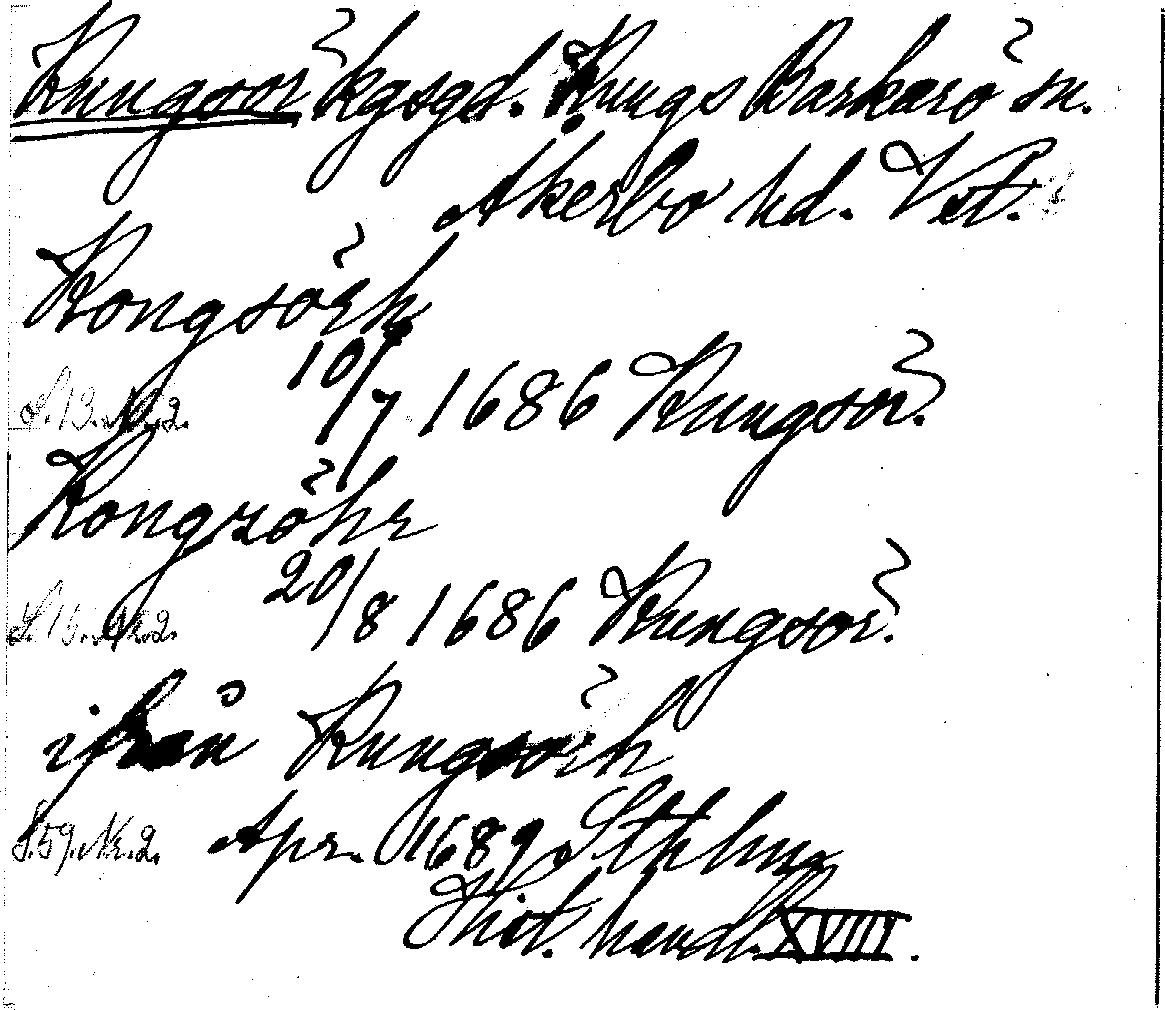 Kungsör kgsgd. Kungs Barkarö sn.
Åkerbo hd. Vstm.
Kongsörh
S.13.Nr.2. 10/7 1686 Kungsör.
Kongzöhr
S.15.Nr.2. 20/8 1686 Kungsör.
ifrån Kungsörh
S.59.Nr.2. Apr. 1689 Sthlm
Hist. handl. XVIII.